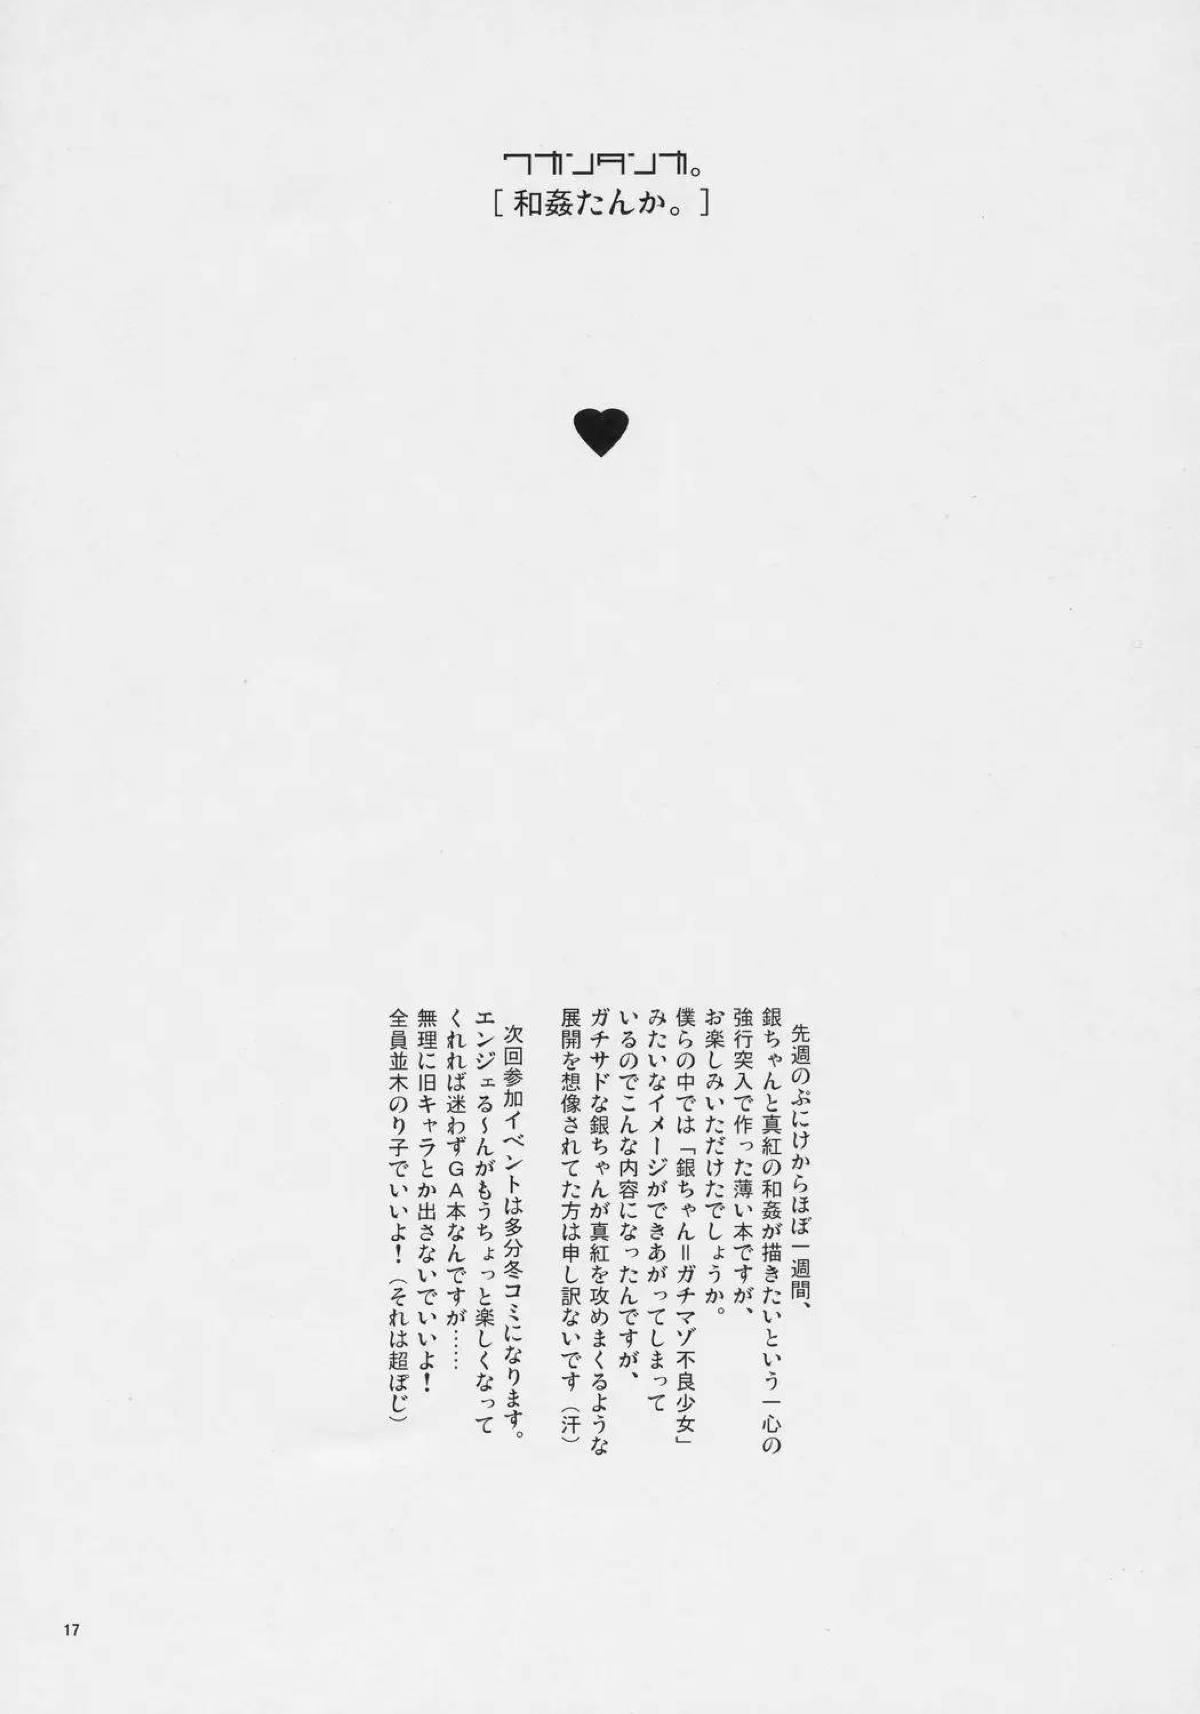 ワカンタンカ。
[ 和姦たんか。]
先週のぷにけからほぼ一週間、
銀ちゃんと真紅の和姦が描きたいという一心の
強行突入で作った薄い本ですが、
お楽しみいただけたでしょうか。
僕らの中では「銀ちゃん＝ガチマゾ不良少女」
みたいなイメージができあがってしまって
いるのでこんな内容になったんですが、
ガチサドな銀ちゃんが真紅を攻めまくるような
展開を想像されてた方は申し訳ないです（汗）
次回参加イベントは多分冬コミになります。
エンジェる〜んがもうちょっと楽しくなって
くれれば迷わずＧＡ本なんですが……
無理に旧キャラとか出さないでいいよ！
全員並木のり子でいいよ！（それは超ぽじ）
17